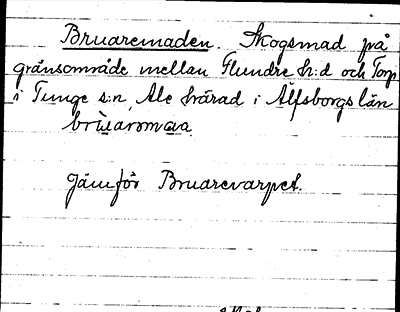 Bruaremaden. Skogsmad på
gränsområde mellan Flundre h:d och Torp
i Tunge s:n, Ale härad i Älfsborgs län
Jämför Bruarevarpet.